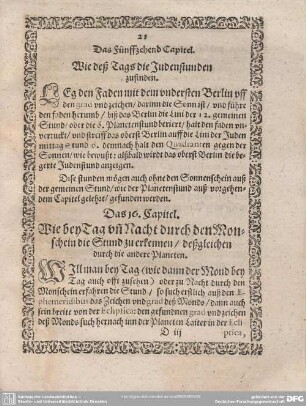 21
Das Fünffzehend Capitel.
Wie deß Tags die Judenstunden
zufinden.
LEg den Faden mit dem vndersten Berlin vff
den grad vnd zeichen/ darinn die Sonn ist/ vnd führe
den faden herumb/ biß das Berlin die Lini der 12. gemeinen
Stund/ oder die 6. Planetenstund berürt/ halt den faden vn-
verruckt/ vnd streiff das oberst Berlin auff die Lini der Juden
mittag Stund 6. demnach halt den Quadranten gegen der
Sonnen/ wie bewußt: alsbald wirdt das oberst Berlin die be-
gerte Judenstund anzeigen.
Dise stunden mögen auch ohne den Sonnenschein auß
der gemeinen Stund/ wie der Planetenstund auß vorgehen-
dem Capitel gelehrt/ gefunden werden.
Das 16. Capitel.
Wie bey Tag vñ Nacht durch den Mon-
schein die Stund zu erkennen/ deßgleichen
durch die andere Planeten.
WIll man bey Tag (wie dann der Mond bey
Tag auch offt zusehen) oder zu Nacht durch den
Monschein erfahren die Stund/ so such erstlich auß den E-
phemeridibus das Zeichen vnd grad deß Monds/ dann auch
sein breite von der Ecliptica: den gefundnen grad vnd zeichen
deß Monds such hernach inn der Planeten Laiter in der Ecli-
D iij
ptica,